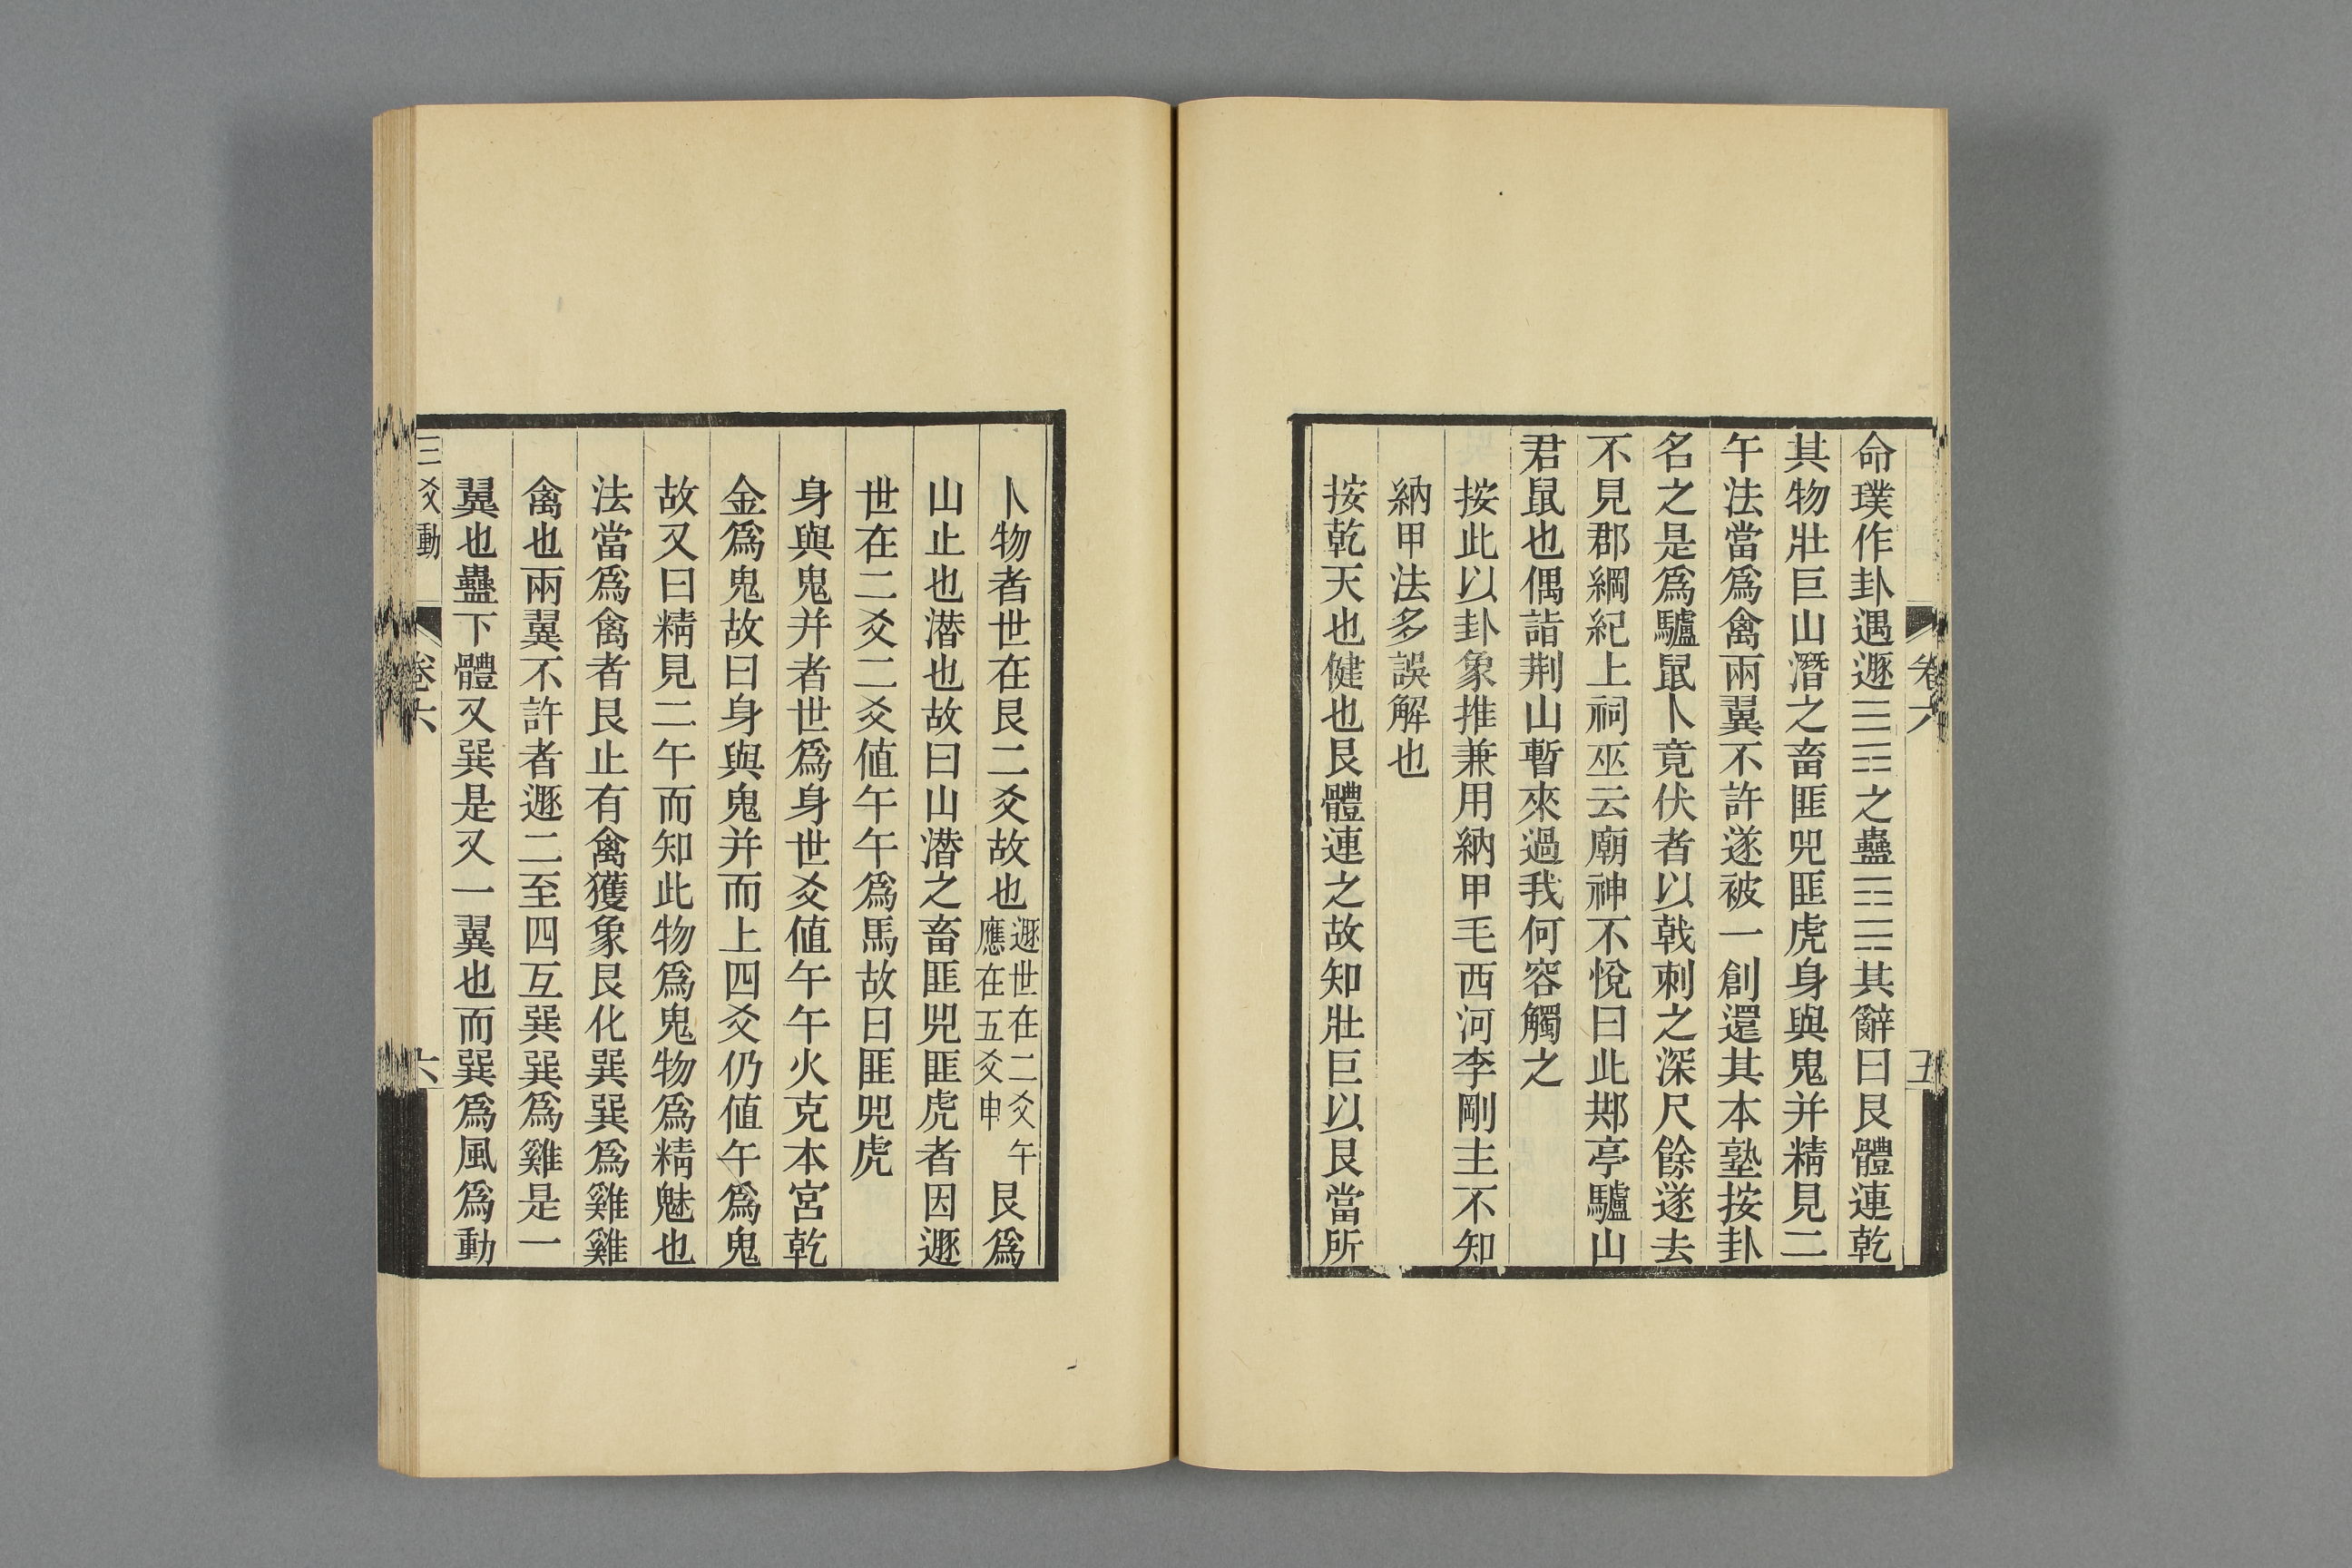 命璞作卦遇遯☰☶之蠱☶☴其辭曰艮體連乾
其物壯巨山潛之畜匪兕匪虎身與鬼并精見二
午法當爲禽兩翼不許遂被一創還其本墊按卦
名之是爲驢鼠卜竟伏者以戟刺之深尺餘遂去
不見郡綱紀上祠巫云廟神不悅曰此䢼亭驢山
君鼠也偶詣荆山暫來過我何容觸之
按此以卦象推兼用納甲毛西河李剛主不知
納甲法多誤解也
按乾天也健也艮體連之故知壯巨以艮當所
卷六
五
卜物者世在艮二爻故也遯世在二爻午應在五爻申艮爲
山止也潜也故曰山潜之畜匪兕匪虎者因遯
世在二爻二爻値午午爲馬故曰匪兕虎
身與鬼并者世爲身世爻値午午火克本宮乾
金爲鬼故曰身與鬼并而上四爻仍値午爲鬼
故又曰精見二午而知此物爲鬼物爲精魅也
法當爲禽者艮止有禽獲象艮化巽巽爲雞雞
禽也兩翼不許者遯二至四互巽巽爲雞是一
翼也蠱下體又巽是又一翼也而巽爲風爲動
三爻動
卷六
六